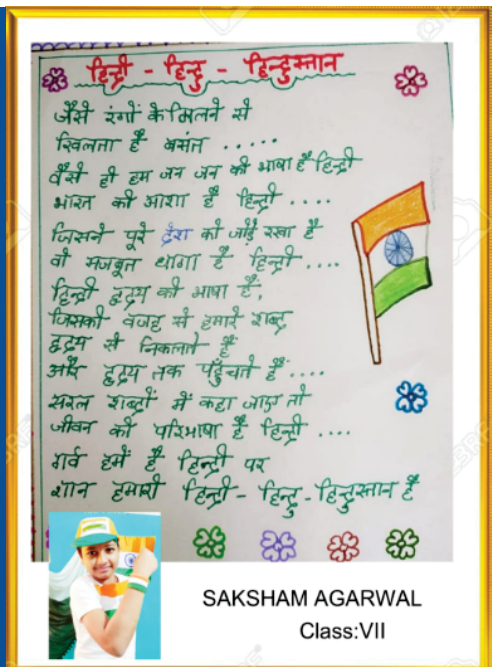 हिन्दी - हिन्दु - हिन्दुस्तान
जैसे रंगों के मिलने से
खिलता है बसंत .....
वैसे ही हम जन जन की भाषा है हिन्दी
भारत की आशा है हिन्दी ....
जिसने पूरे देश को जोड़े रखा है
वो मजबूत धागा है हिन्दी ....
हिन्दी हृदय की भाषा है,
जिसकी वजह से हमारे शब्द
हृदय से निकलते हैं
और हृदय तक पहुँचते हैं ....
सरल शब्दों में कहा जाए तो
जीवन की परिभाषा है हिन्दी ....
गर्व हमें है हिन्दी पर
शान हमारी हिन्दी - हिन्दु - हिन्दुस्तान है
SAKSHAM AGARWAL
Class:VII